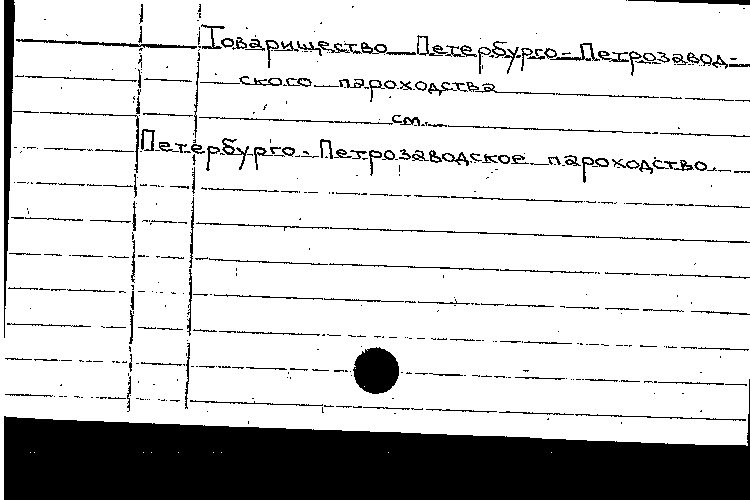 Товарищество Петербурго-Петрозавод-
ского пароходства
см.
Петербурго-Петрозаводское пароходство.